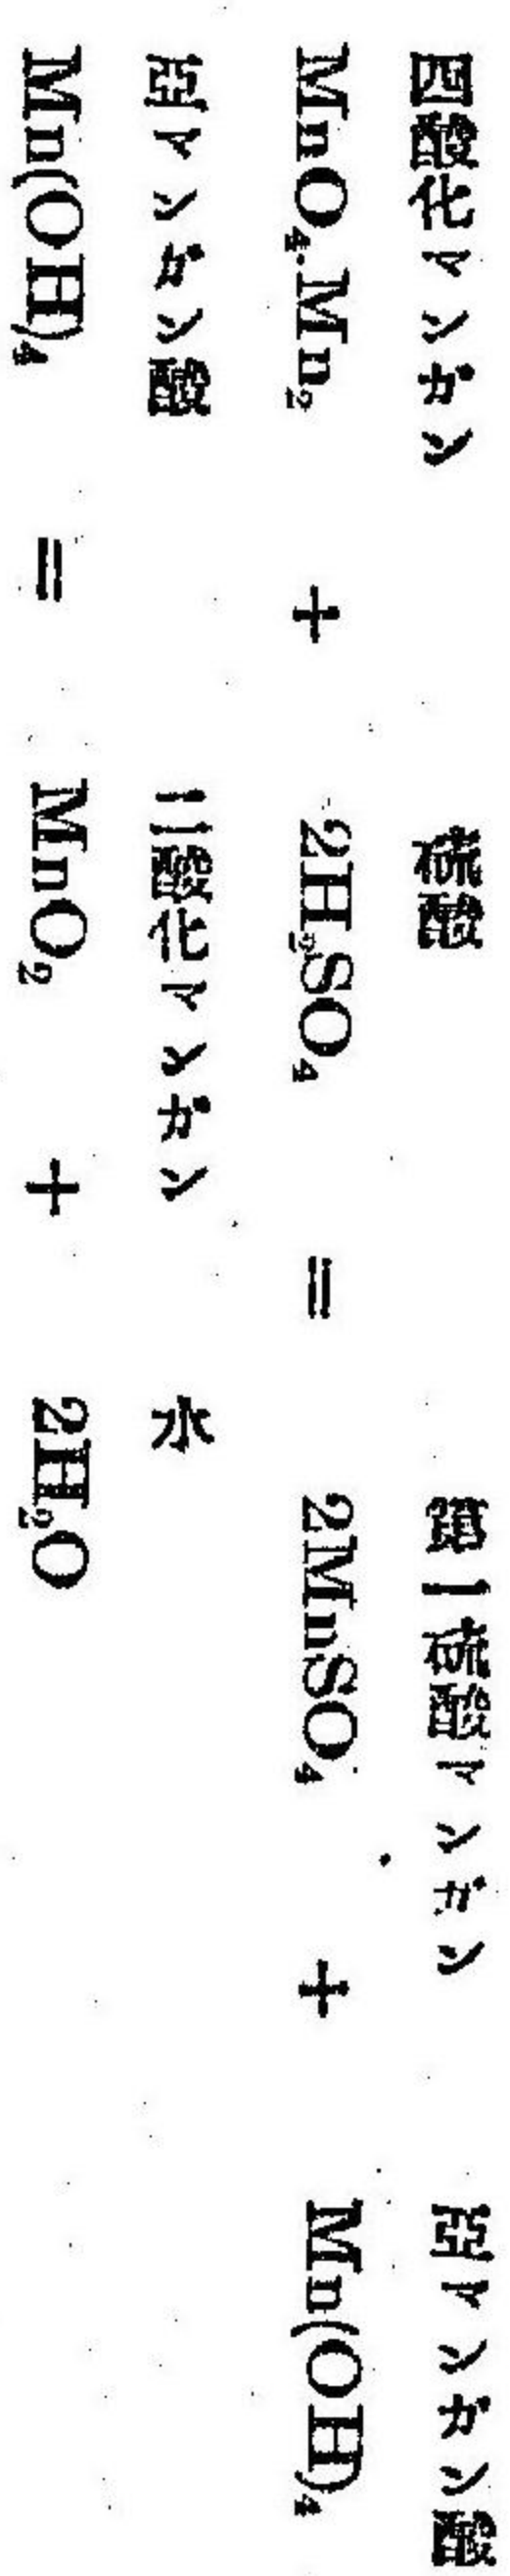 四酸化マンガン 硫酸 第一硫酸マンガン 亞マンガン酸
MnO₄.Mn₂ + 2H₂SO₄ = 2MnSO₄ + Mn(OH)₄
亞マンガン酸 二酸化マンガン 水
Mn(OH)₄ = MnO₂ + 2H₂O